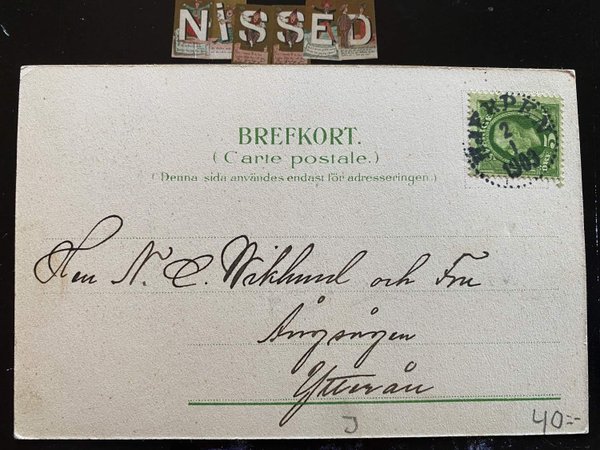 NiSSED
BREFKORT.
(Carte postale.)
(Denna sida användes endast för adresseringen.)
2
1
1903
Herr N. C. Wiklund och Fru
Ångsågen
Ytterån
J
40:-